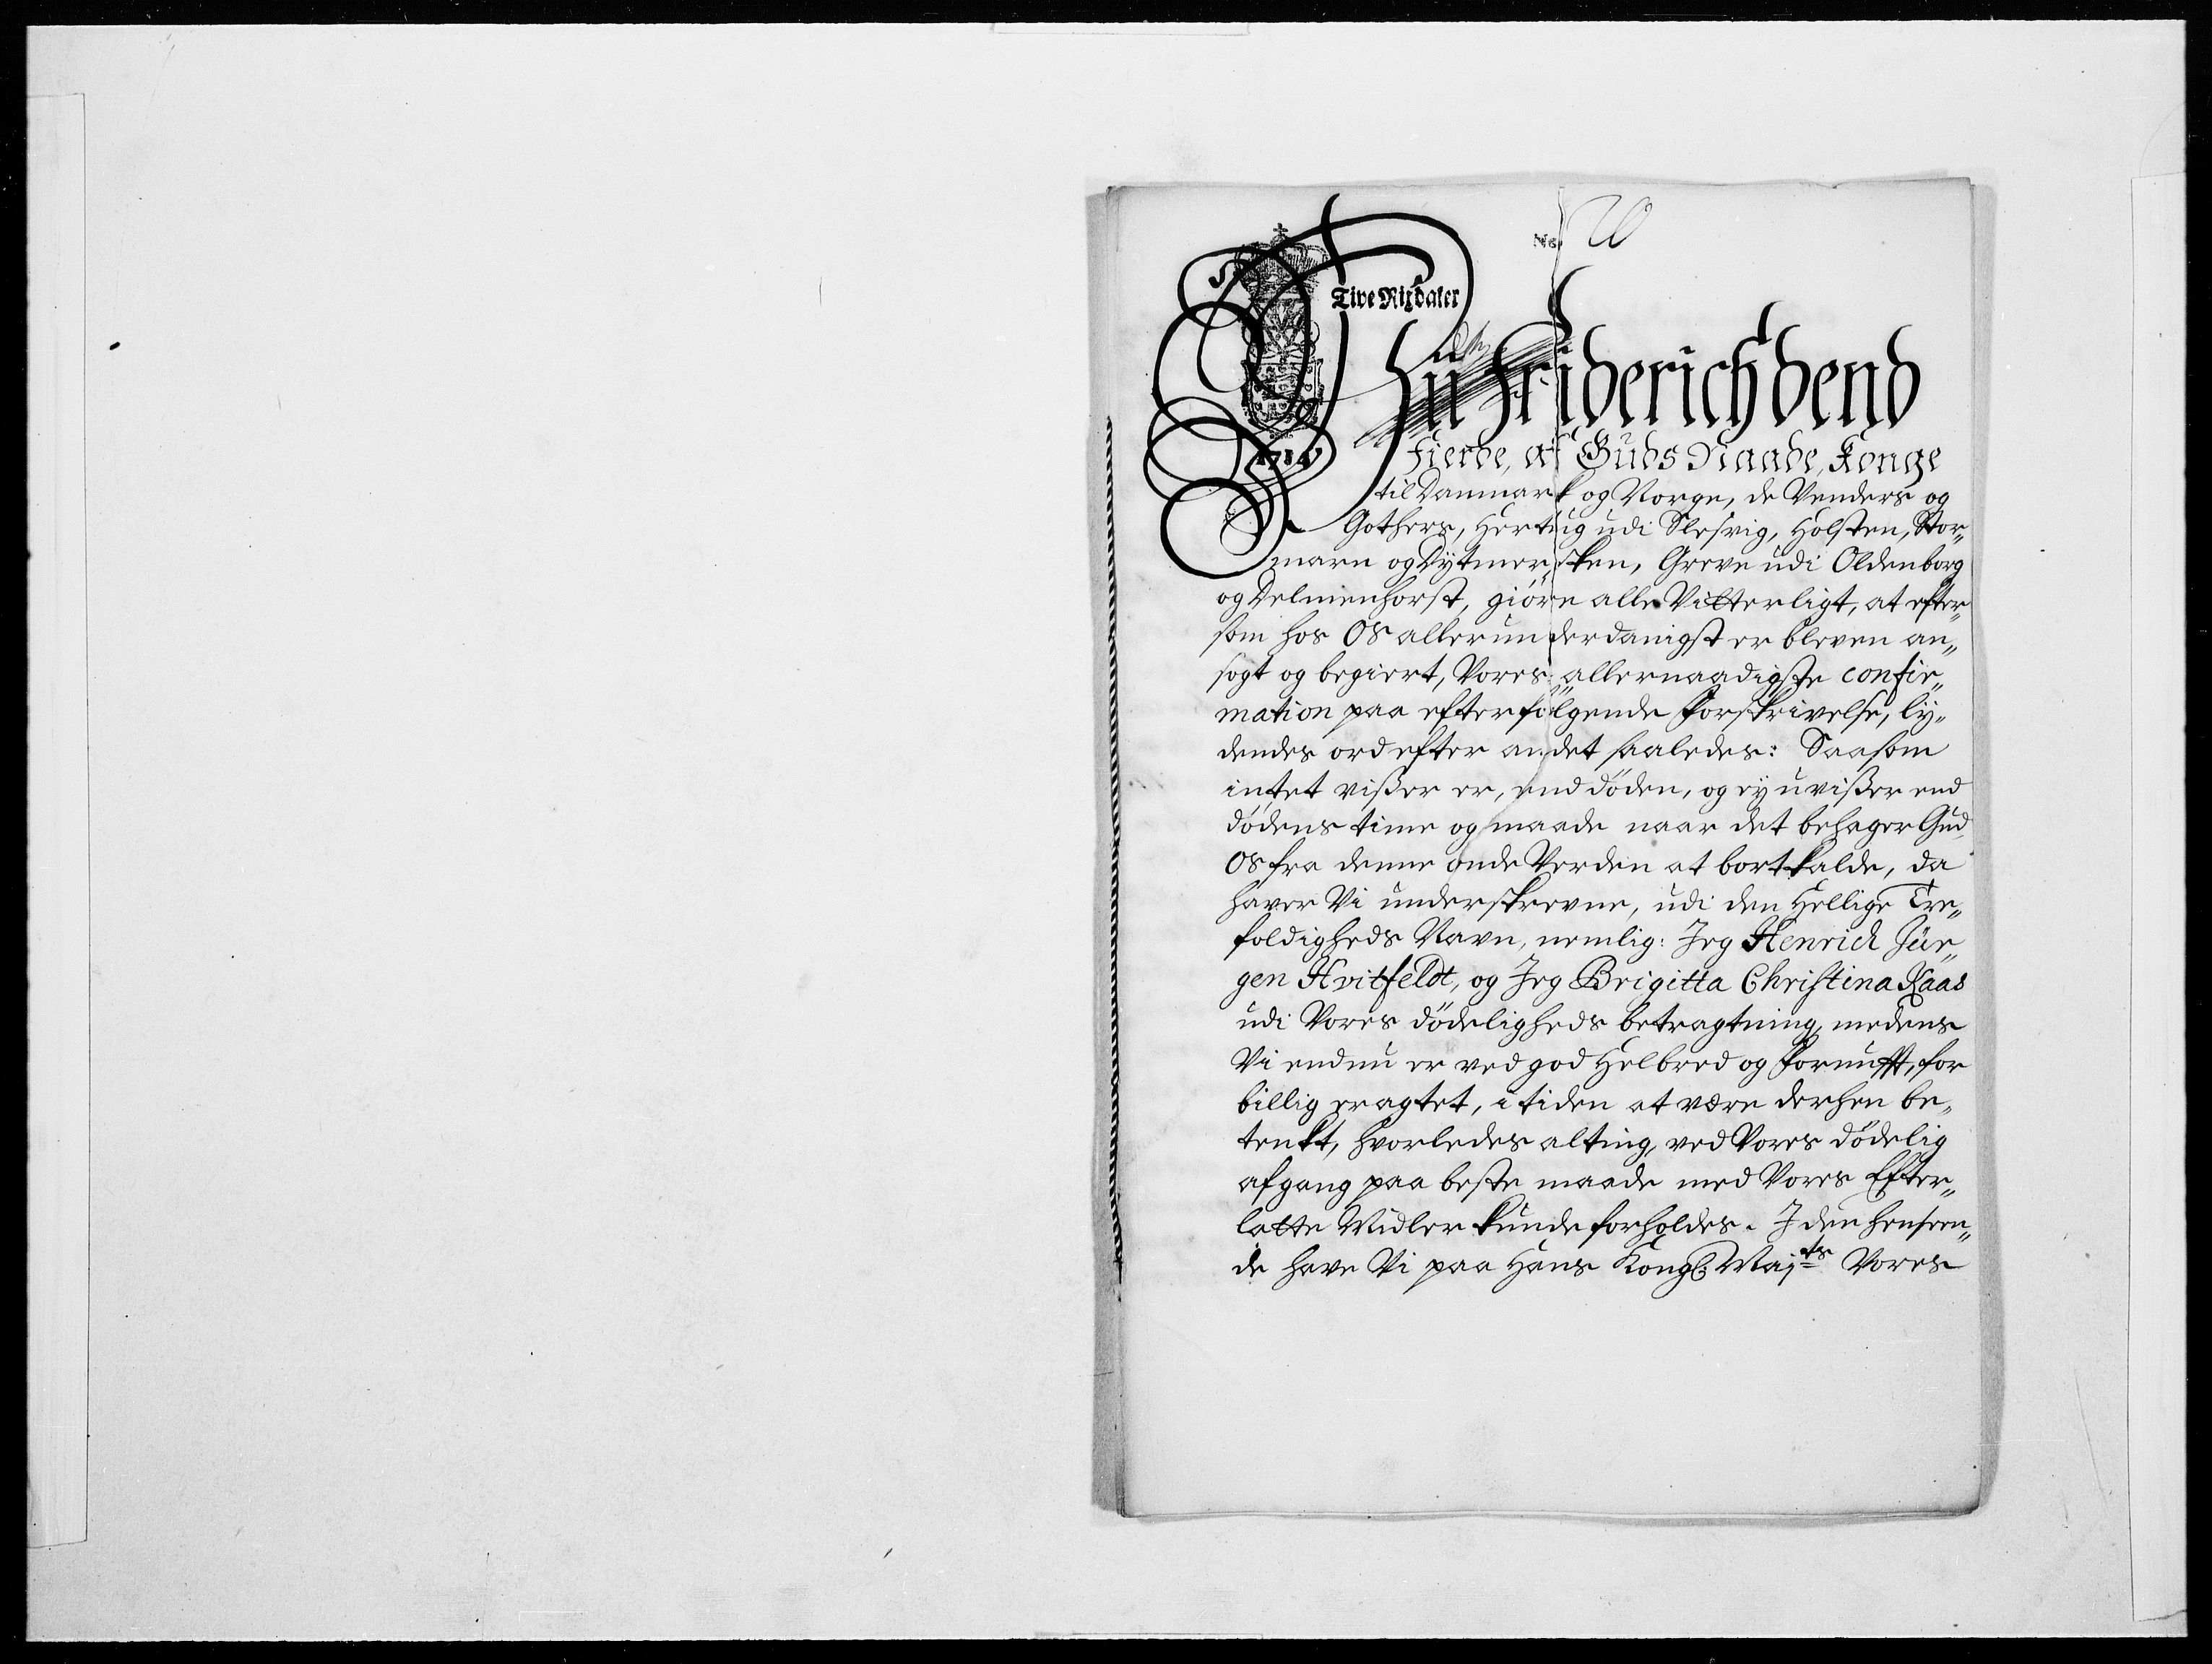 No.
Tive Rixdaler
Vii Friderich dend
1714
Fierde, af Guds Naade, Konge
til Danmark og Norge, de Venders og
Gothers, Hertug udi Slesvig, Holsten, Stor„
marn og Dytmersken, Greve udi Oldenborg
og Delmenhorst, giöre alle Vitterligt, at efter„
som hos OS allerunderdanigst er bleven an„
sogt og begiert, Vores allernaadigste confir„
mation paa efterfölgende Forskrivelse, ly„
dendes ord efter andet saaledes: Saasom
intet visßer er, end döden, og ey uvisßer end
dödens time og maade naar det behager Gud
OS fra denne onde Verden at bortkalde, da
haver Vi underskrevne, udi den Hellige Tre„
foldigheds Navn, nemlig: Jeg Henrich Jür„
gen Hvitfeldt, og Jeg Brigitta Christina Kaas
udi Vores dödeligheds betragtning, medens
Vi endnu er ved god Helbred og Fornufft, for
billig eragtet, i tiden at være derhen be„
tenkt, hvorledes alting, ved Vores dödelig
afgang paa beste maade med Vores Efter„
latte Midler kunde forholdes. J den henseen„
de have Vi paa Hans Kongl: Majts Vores